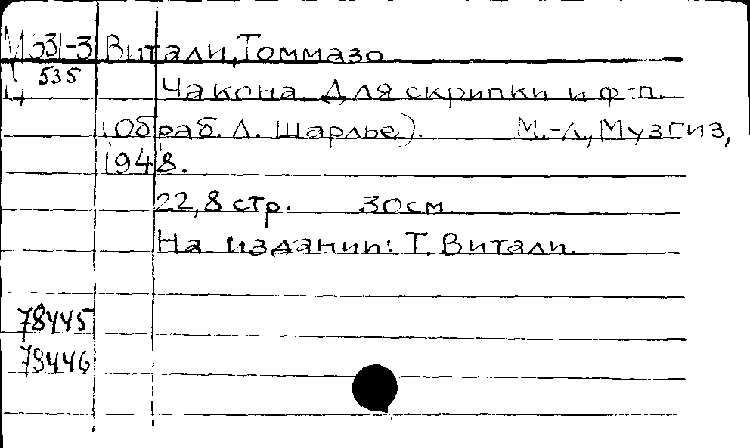 М 531-3 Витали, Томмазо
Ч 535
Чакона. Для скрипки и ф-п.
(Обраб. Л. Шарлье). М.-Л., Музгиз,
1948.
22,8 стр. 30 см
На издании: Т. Витали.
78445
78446